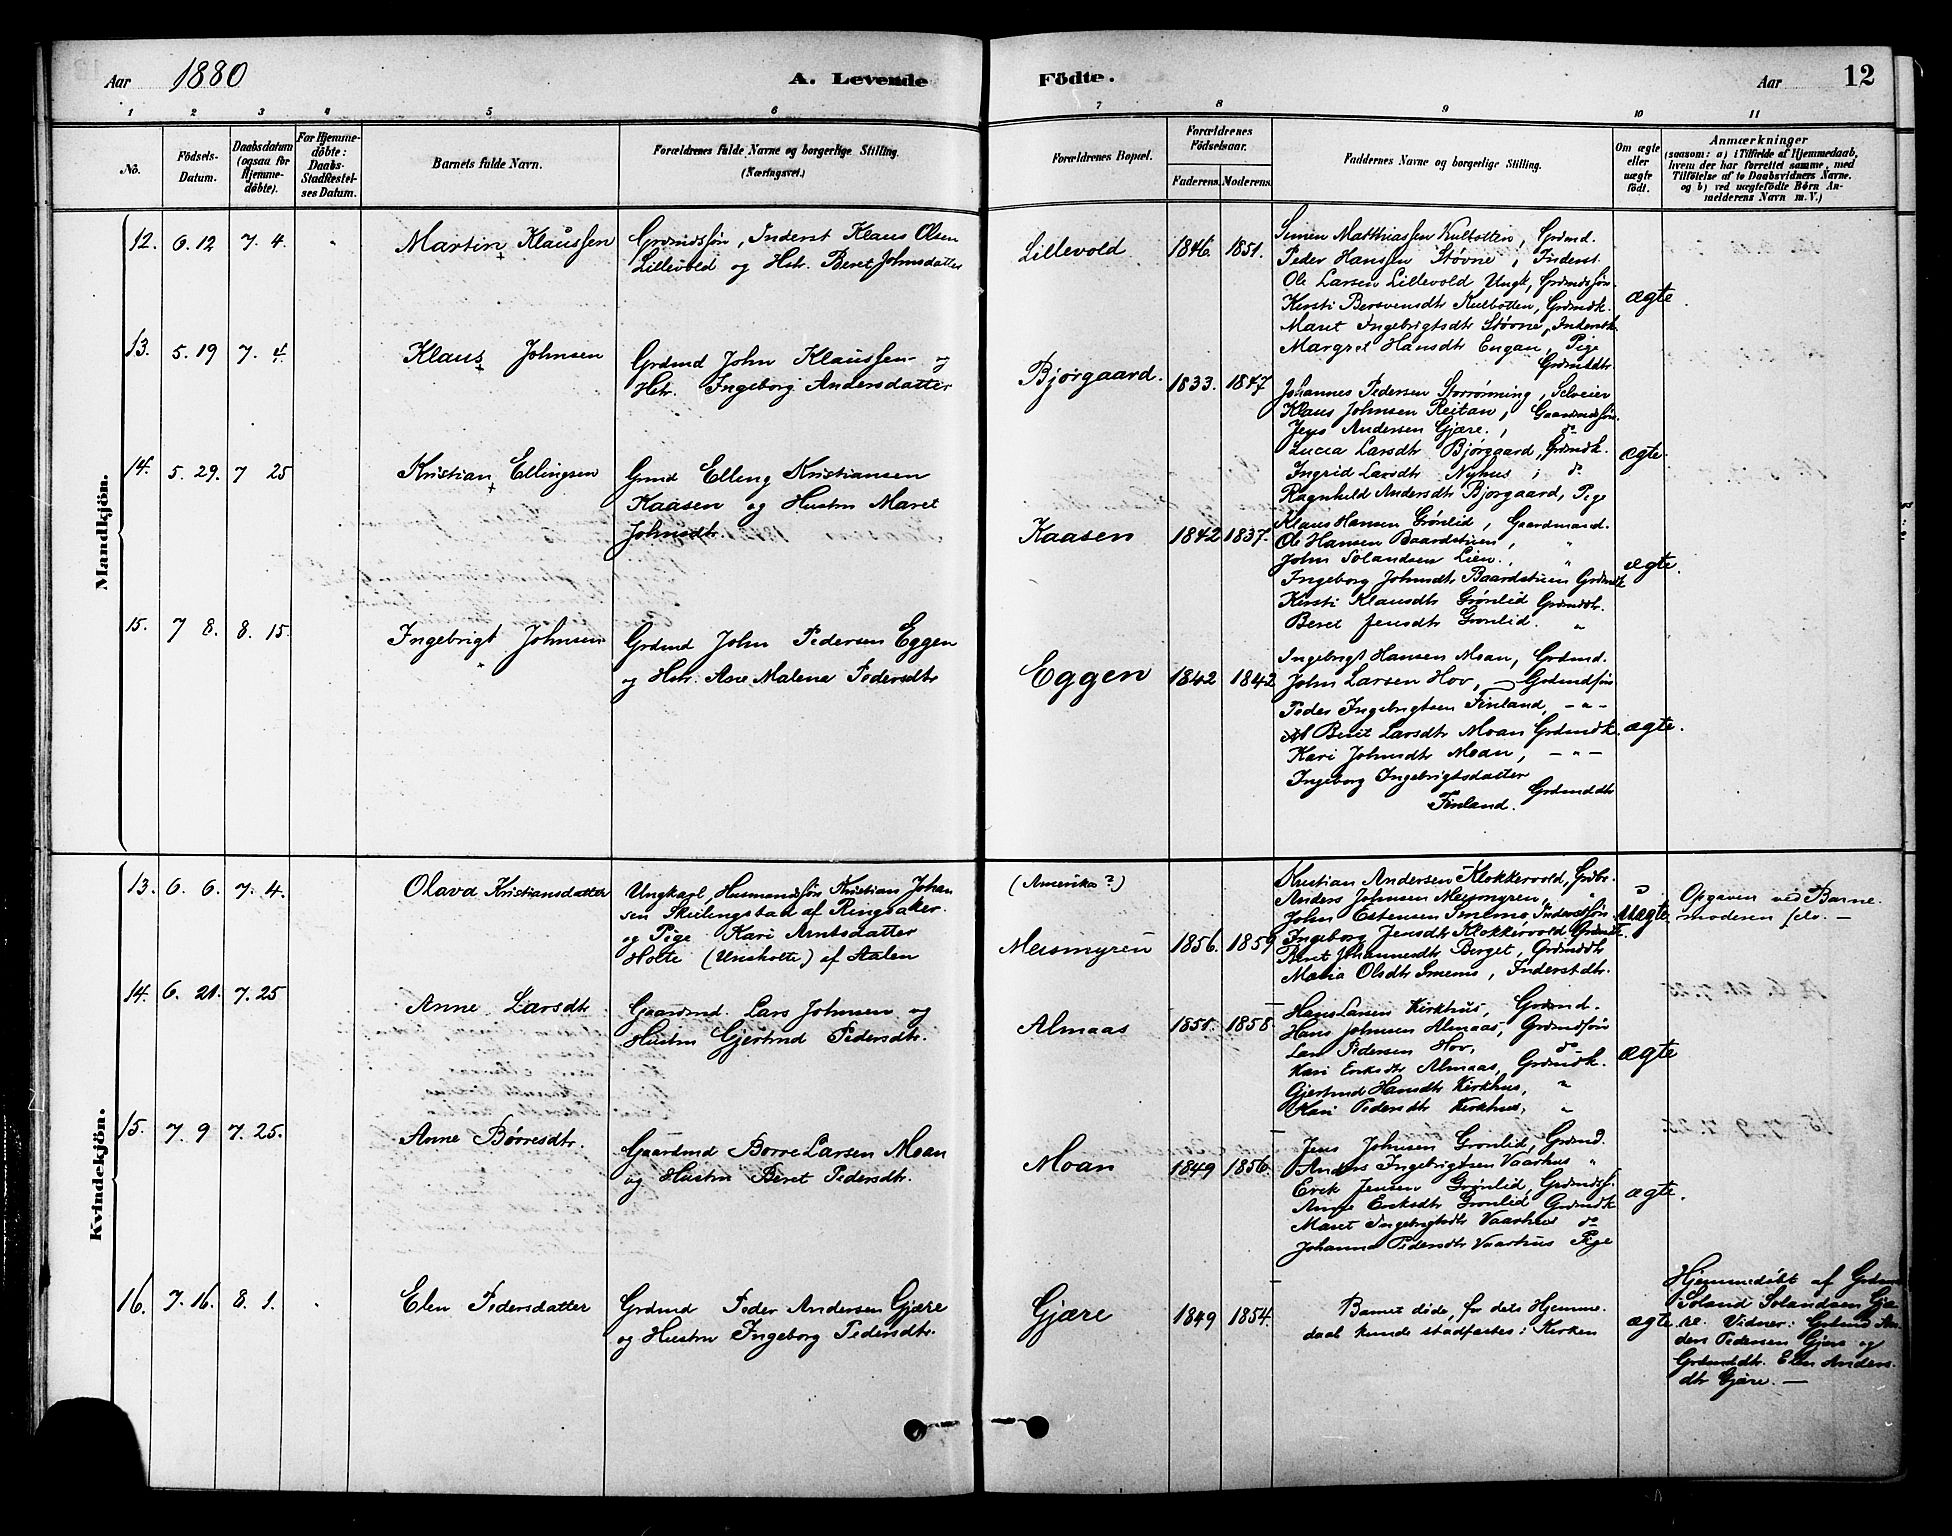 Aar 1880 A. Levende Födte. Aar 12
1 2 3 4 5 6 7 8 9 10 11
No.
Födsels-Datum.
Daabsdatum (ogsaa for Hjemme-döbte).
For Hjemme-döbte: Daabs-StadfKestel-ses Datum.
Barnets fulde Navn.
Forældrenes fulde Navne og borgerlige Stilling. (Næringsvei.)
Forældrenes Bopæl.
Forældrenes Födselsaar.
Faderens. Moderens.
Faddernes Navne og borgerlige Stilling.
Om ægte eller uægte födt.
Anmærkninger
(saasom: a) i Tilfælde af Hjemmedaab, hvem der har forrettet samme, med Tilföielse af to Daabsvidners Navne, og b) ved uægtefödte Börn Anmelderens Navn m. V.)
Mandkjön.
12. 6. 12 7. 4. Martin Klaussen
Grdmdssøn, Inderst Klaus Olsen
Lillevold og Hstr. Beret Johnsdatter
Lillevold 1846. 1851.
Simen Matthiassen Kulbotten, Grdmd.
Peder Hansen Støvne, Inderst.
Ole Larsen Lillevold Ungk, Grdmdssøn.
Kirsti Bersvensdtr Kulbotten, Grdmdk.
Maret Ingebrigtsdtr Støvne, Inderstk.
Margret Hansdtr Engan, Pige
Grdmddtr.
ægte.
13. 5. 19 7. 4. Klaus Johnsen
Grdmd John Klaussen og
Hstr. Ingeborg Andersdatter
Bjørgaard. 1833. 1847
Johannes Pedersen Storrønning, Selveier
Klaus Johnsen Reitan, Gaardmdssøn.
Jens Andersen Gjære., do
Lucia Larsdtr Bjørgaard, Grdmdk.
Ingrid Larsdtr Nyhus, do
Ragnhild Andersdtr Bjørgaard, Pige
ægte.
14. 5. 29. 7 25 Kristian Ellingsen
Grmd Elling Kristiansen
Kaasen og Hustru Maret
Johnsdtr
Kaasen 1842 1837.
Klaus Hansen Grønlid, Gaardmand.
Ole Hansen Baardstuen, "
John Solandsen Lien., "
Ingeborg Johnsdtr Baardstuen Grdmdk
Kirsti Klausdtr Grønlid Grdmddtr.
Beret Jensdtr Grønlid. "
ægte.
15. 7 8. 8. 15. Ingebrigt Johnsen
Grdmd John Pedersen Eggen
og Hstr. Ane Malena Pedersdtr
Eggen 1842 1842
Ingebrigt Hansen Moan, Grdmd.
John Larsen Hov, Grdmdssøn
Peder Ingebrigtsen Finland, - " -
Berit Larsdtr Moan Grdmdk.
Kari Johnsdtr Moan, - " -
Ingeborg Ingebrigtsdatter
Finland. Grdmddtr
ægte.
Kvindekjön.
13. 6. 6. 7. 4. Olava Kristiansdatter
Ungkarl, Husmandssøn Kristian Johan
sen Skielingstad af Ringsaker.
og Pige Kari Arntsdatter
Holte (Unsholte) af Aalen
(Amerika?)
Meismyren 1856. 1859
Kristian Andersen Klokkervold, Grdbr.
Anders Johnsen Meismyren, "
John Estensen Smemo, Inderstsøn.
Ingeborg Jensdtr Klokkervold Grdmdk.
Beret Johannesdtr Berget, Grdmddtr
Maria Olsdtr Smemo, Inderstdtr.
Uægte.
Opgaven ved Barne.
moderen selv. —
14. 6. 21. 7. 25 Anne Larsdtr
Gaardmd. Lars Johnsen og
Hustru Gjertrud Pedersdtr.
Almaas 1858
Hans Larsen Kirkhus, Grdmd.
Hans Johnsen Almaas, Grdmdssøn
Lars Pedersen Hov, do
Kari Eriksdtr Almaas, Grdmdk.
Gjertrud Hansdtr Kirkhus, "
Kari Pedersdtr Kirkhus, "
ægte
15. 7. 9 7. 25. Anne Børresdtr.
Gaardmd Børre Larsen Moan
og Hustru Beret Pedersdtr.
Moan 1849 1856.
Jens Johnsen Grønlid, Grdmd.
Anders Ingebrigtsen Vaarhus "
Erik Jensen Grønlid, Grdmdss.
Anne Eriksdtr Grønlid Grdmdk
Maret Ingebrigtsdtr Vaarhus do
Johanna Pedersdtr Vaarhus Pige
ægte.
16. 7. 16. 8. 1. Elen Pedersdatter
Grdmd Peder Andersen Gjære
og Hustru Ingeborg Pedersdtr.
Gjære 1849 1854.
Barnet døde, før dets Hjemme.
daab kunde stadfæstes i Kirken
ægte
Hjemmedøbt af Grdmd
Soland Solandsen Gjæ
re. Vidner: Grdmd An
ders Pedersen Gjære og
Grdmddtr. Elen Anders
dtr Gjære. —